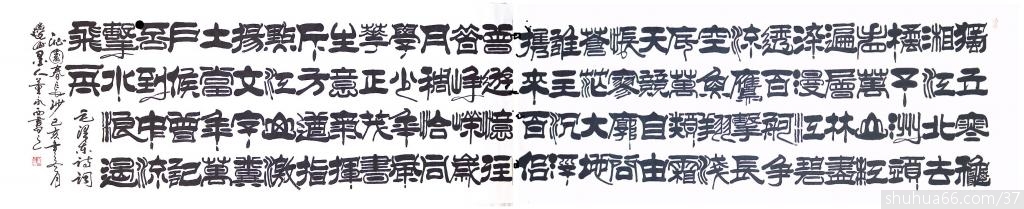 獨立寒穐
湘江北去
橘子洲頭
看萬山紅
遍層林盡
染漫江碧
透百舸爭
流鷹擊長
空魚翔淺
底萬類霜
天競自由
悵寥廓問
蒼茫大地
誰主沉浮
攜來百侣
曾遊憶往
昔崢嶸歲
月稠恰同
學少年風
華正茂書
生意氣揮
斥方遒指
點江山激
揚文字糞
土當年萬
戶侯曾記
否到中流
擊水浪遏
飛舟
毛澤東詩詞
沁園春長沙己亥年月
墨人董永西書
shuhua66.com/37